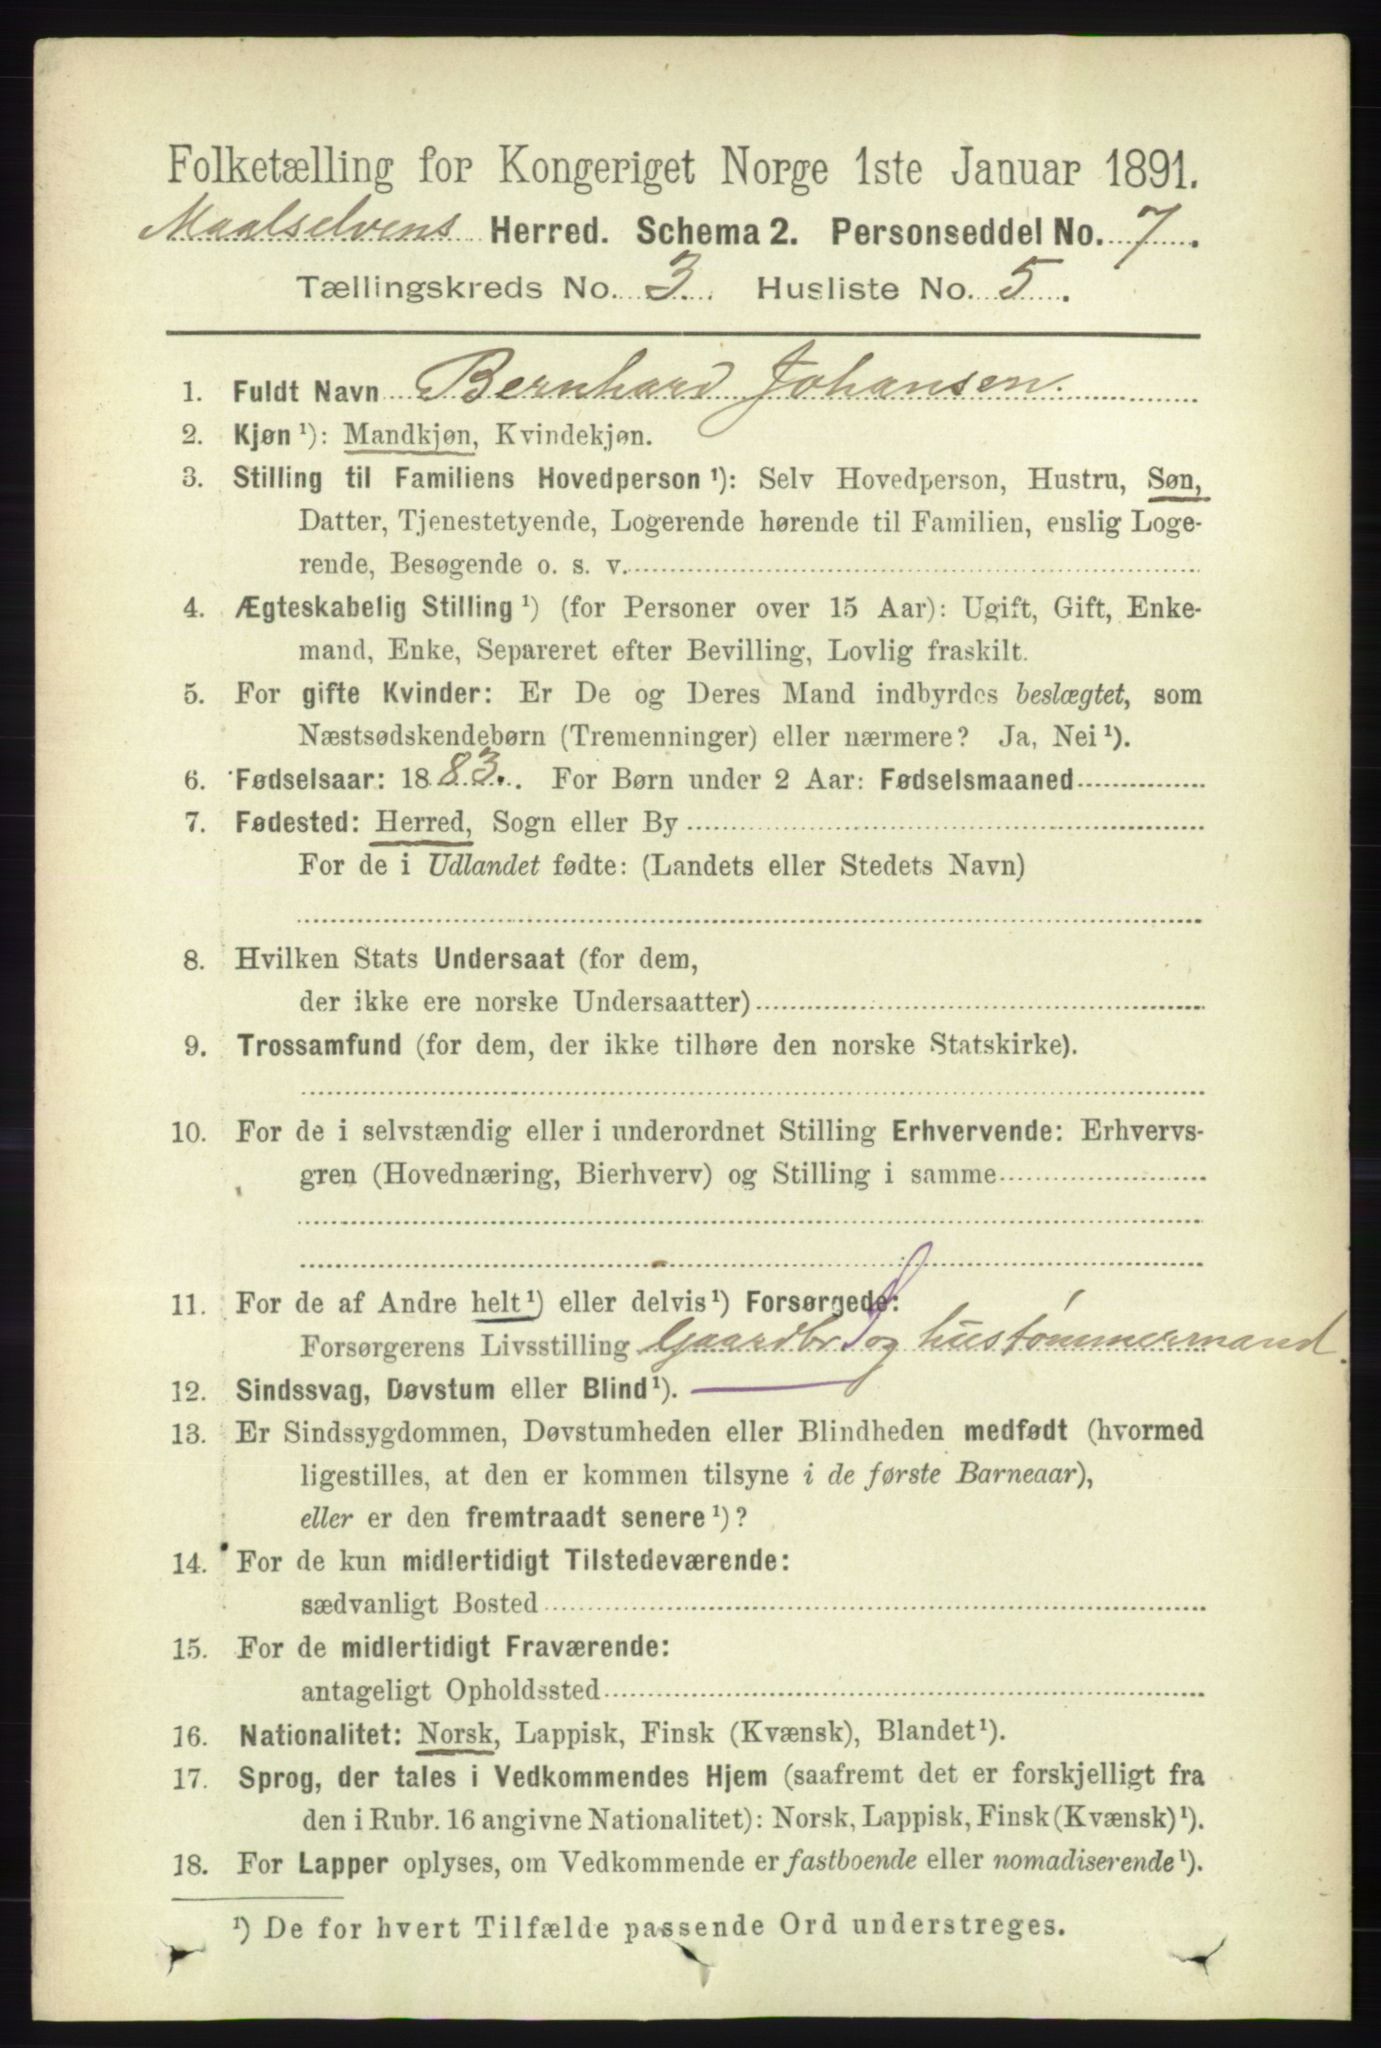 Folketælling for Kongeriget Norge 1ste Januar 1891.
Maalselvens Herred. Schema 2. Personseddel No. 7.
Tællingskreds No. 3. Husliste No. 5.
1. Fuldt Navn Bernhard Johansen.
2. Kjøn ¹): Mandkjøn, Kvindekjøn.
3. Stilling til Familiens Hovedperson ¹): Selv Hovedperson, Hustru, Søn,
Datter, Tjenestetyende, Logerende hørende til Familien, enslig Loge-
rende, Besøgende o. s. v.
4. Ægteskabelig Stilling ¹) (for Personer over 15 Aar): Ugift, Gift, Enke-
mand, Enke, Separeret efter Bevilling, Lovlig fraskilt.
5. For gifte Kvinder: Er De og Deres Mand indbyrdes beslægtet, som
Næstsødskendebørn (Tremenninger) eller nærmere? Ja, Nei ¹).
6. Fødselsaar: 1883. For Børn under 2 Aar: Fødselsmaaned
7. Fødested: Herred, Sogn eller By
For de i Udlandet fødte: (Landets eller Stedets Navn)
8. Hvilken Stats Undersaat (for dem,
der ikke ere norske Undersaatter)
9. Trossamfund (for dem, der ikke tilhøre den norske Statskirke).
10. For de i selvstændig eller i underordnet Stilling Erhvervende: Erhvervs-
gren (Hovednæring, Bierhverv) og Stilling i samme
11. For de af Andre helt ¹) eller delvis ¹) Forsørgede:
Forsørgerens Livsstilling Gaardbr og hustømmermand.
12. Sindssvag, Døvstum eller Blind ¹).
13. Er Sindssygdommen, Døvstumheden eller Blindheden medfødt (hvormed
ligestilles, at den er kommen tilsyne i de første Barneaar),
eller er den fremtraadt senere ¹)?
14. For de kun midlertidigt Tilstedeværende:
sædvanligt Bosted
15. For de midlertidigt Fraværende:
antageligt Opholdssted
16. Nationalitet: Norsk, Lappisk, Finsk (Kvænsk), Blandet ¹).
17. Sprog, der tales i Vedkommendes Hjem (saafremt det er forskjelligt fra
den i Rubr. 16 angivne Nationalitet): Norsk, Lappisk, Finsk (Kvænsk) ¹).
18. For Lapper oplyses, om Vedkommende er fastboende eller nomadiserende ¹).
¹) De for hvert Tilfælde passende Ord understreges.